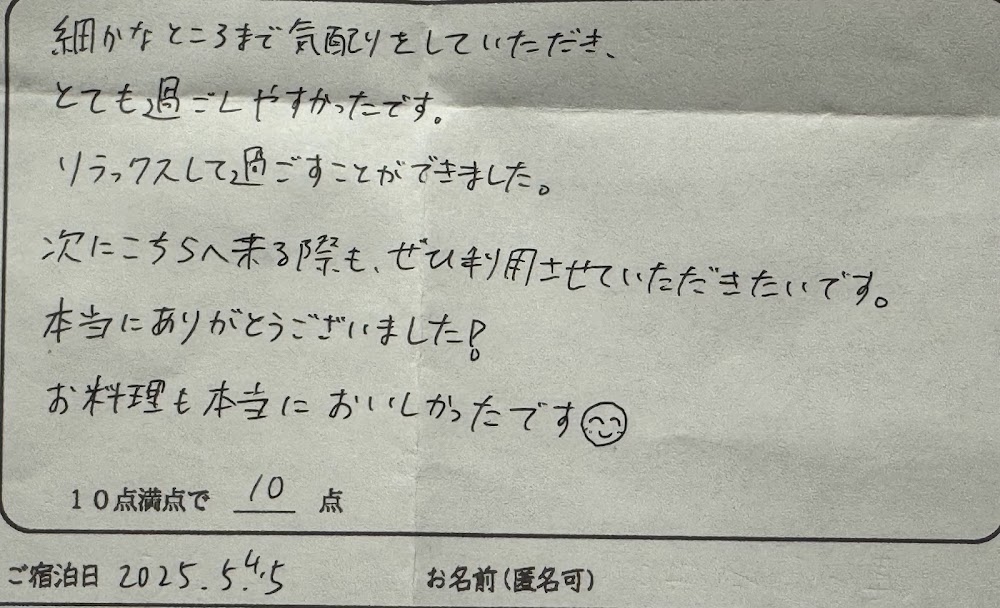 細かなところまで気配りをしていただき、
とても過ごしやすかったです。
リラックスして過ごすことができました。
次にこちらへ来る際も、ぜひ利用させていただきたいです。
本当にありがとうございました!
お料理も本当においしかったです
10点満点で 10 点
ご宿泊日 2025.5.4.5 お名前(匿名可)